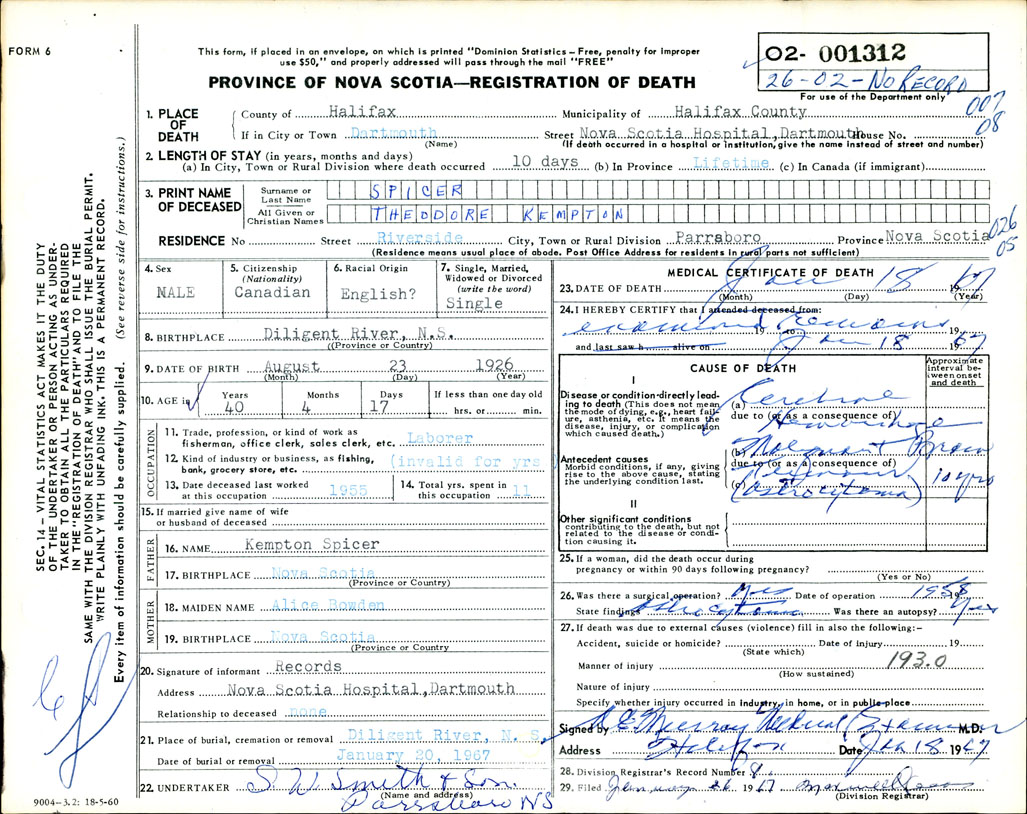 FORM 6
This form, if placed in an envelope, on which is printed "Dominion Statistics – Free, penalty for improper
use $50," and properly addressed will pass through the mail "FREE"
PROVINCE OF NOVA SCOTIA—REGISTRATION OF DEATH
O2- 001312
26-02-No RECORD
For use of the Department only
007
08
1. PLACE OF DEATH
County of Halifax Municipality of Halifax County
If in City or Town Dartmouth Street Nova Scotia Hospital, Dartmouth House No.
(Name) (If death occurred in a hospital or institution, give the name instead of street and number)
2. LENGTH OF STAY (in years, months and days)
(a) In City, Town or Rural Division where death occurred 10 days (b) In Province Lifetime (c) In Canada (if immigrant)
3. PRINT NAME OF DECEASED
Surname or Last Name SPICER
All Given or Christian Names THEODORE KEMPTON
RESIDENCE No Street Riverside City, Town or Rural Division Parrsboro Province Nova Scotia
026
05
(Residence means usual place of abode. Post Office Address for residents in rural parts not sufficient)
4. Sex
MALE
5. Citizenship (Nationality)
Canadian
6. Racial Origin
English?
7. Single, Married, Widowed or Divorced (write the word)
Single
8. BIRTHPLACE Diligent River, N.S.
(Province or Country)
9. DATE OF BIRTH August 23 1926
(Month) (Day) (Year)
10. AGE in Years Months Days If less than one day old
40 4 17 hrs. or min.
OCCUPATION
11. Trade, profession, or kind of work as
fisherman, office clerk, sales clerk, etc. Laborer
12. Kind of industry or business, as fishing,
bank, grocery store, etc. (invalid for yrs
13. Date deceased last worked
at this occupation 1955
14. Total yrs. spent in
this occupation 11
15. If married give name of wife
or husband of deceased
FATHER
16. NAME Kempton Spicer
17. BIRTHPLACE Nova Scotia
(Province or Country)
MOTHER
18. MAIDEN NAME Alice Bowden
19. BIRTHPLACE Nova Scotia
(Province or Country
20. Signature of informant Records
Address Nova Scotia Hospital, Dartmouth
Relationship to deceased none
21. Place of burial, cremation or removal Diligent River, N. S.
Date of burial or removal January 20, 1967
22. UNDERTAKER S. W. Smith & Son
(Name and address)
Parrsboro NS
9004-3.2: 18-5-60
MEDICAL CERTIFICATE OF DEATH
23. DATE OF DEATH Jan 18 1967
(Month) (Day) (Year)
24. I HEREBY CERTIFY that I attended deceased from:
examined 19 to remains 19
and last saw h alive on Jan 18 1967
CAUSE OF DEATH
Approximate interval between onset and death
I
Disease or condition directly leading to death (This does not mean the mode of dying, e.g., heart failure, asthenia, etc. It means the disease, injury, or complication which caused death.)
(a) Cerebral
due to (or as a consequence of)
Hemorrhage
Antecedent causes
Morbid conditions, if any, giving rise to the above cause, stating the underlying condition last.
(b) Malignant Brain
due to (or as a consequence of)
(c) (astrocytoma) 10 yrs
II
Other significant conditions
contributing to the death, but not related to the disease or condition causing it.
25. If a woman, did the death occur during
pregnancy or within 90 days following pregnancy?
(Yes or No)
26. Was there a surgical operation? Yes Date of operation 1958
State findings Astrocytoma Was there an autopsy? Yes
27. If death was due to external causes (violence) fill in also the following:-
Accident, suicide or homicide? Date of injury 19
(State which)
Manner of injury 193.0
(How sustained)
Nature of injury
Specify whether injury occurred in industry, in home, or in public place
Signed by Murray Medical Examiner M.D.
Address Halifax Date Jan 18 1967
28. Division Registrar's Record Number
29. Filed January 26 1967
(Division Registrar)
SEC. 14 – VITAL STATISTICS ACT MAKES IT THE DUTY
OF THE UNDERTAKER OR PERSON ACTING AS UNDER-
TAKER TO OBTAIN ALL THE PARTICULARS REQUIRED
IN THE "REGISTRATION OF DEATH" AND TO FILE THE
SAME WITH THE DIVISION REGISTRAR WHO SHALL ISSUE THE BURIAL PERMIT.
WRITE PLAINLY WITH UNFADING INK. THIS IS A PERMANENT RECORD.
Every item of information should be carefully supplied. (See reverse side for instructions.)